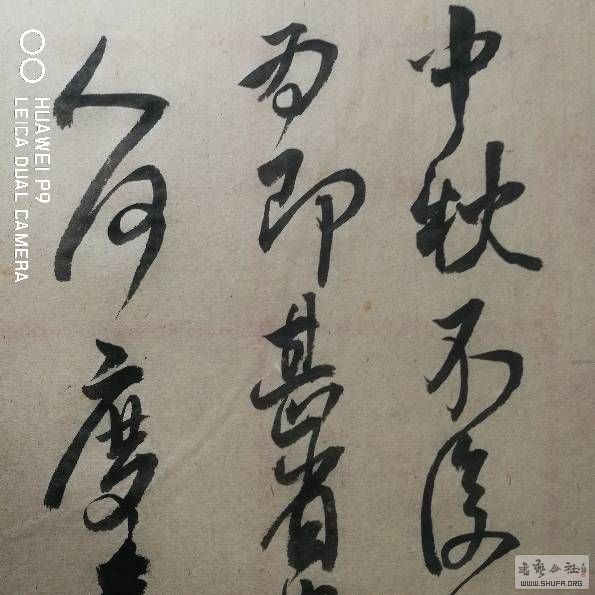 中秋不復
為即甚省
人何慶
HUAWEI P9
LEICA DUAL CAMERA
書藝公社
WWW.SHUFA.ORG